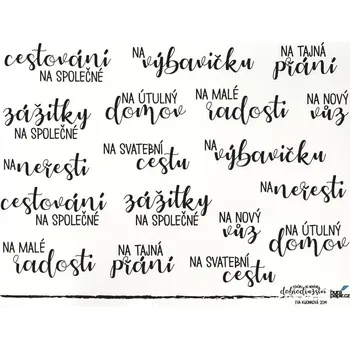 cestování
NA SPOLEČNÉ
NA výbavičku
NA TAJNÁ
přání
zážitky
NA SPOLEČNÉ
NA ÚTULNÝ
domov
NA MALÉ
radosti
NA NOVÝ
vůz
NA neřesti
NA SVATEBNÍ
cestu
NA výbavičku
cestování
NA SPOLEČNÉ
zážitky
NA SPOLEČNÉ
NA NOVÝ
vůz
NA ÚTULNÝ
domov
NA MALÉ
radosti
NA TAJNÁ
přání
NA SVATEBNÍ
cestu
dobrodružství